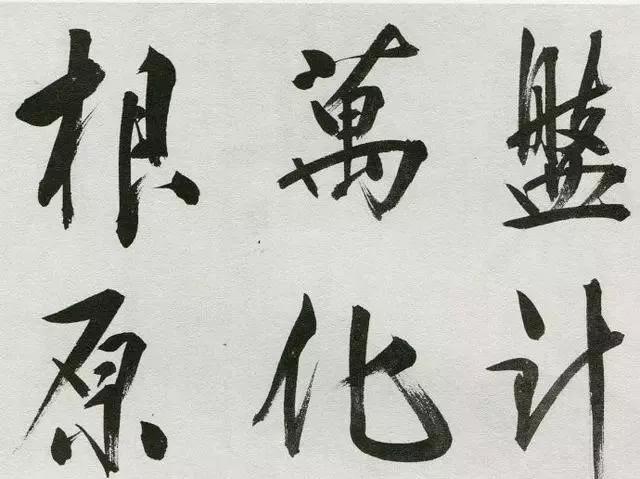 盤計
萬化
根原